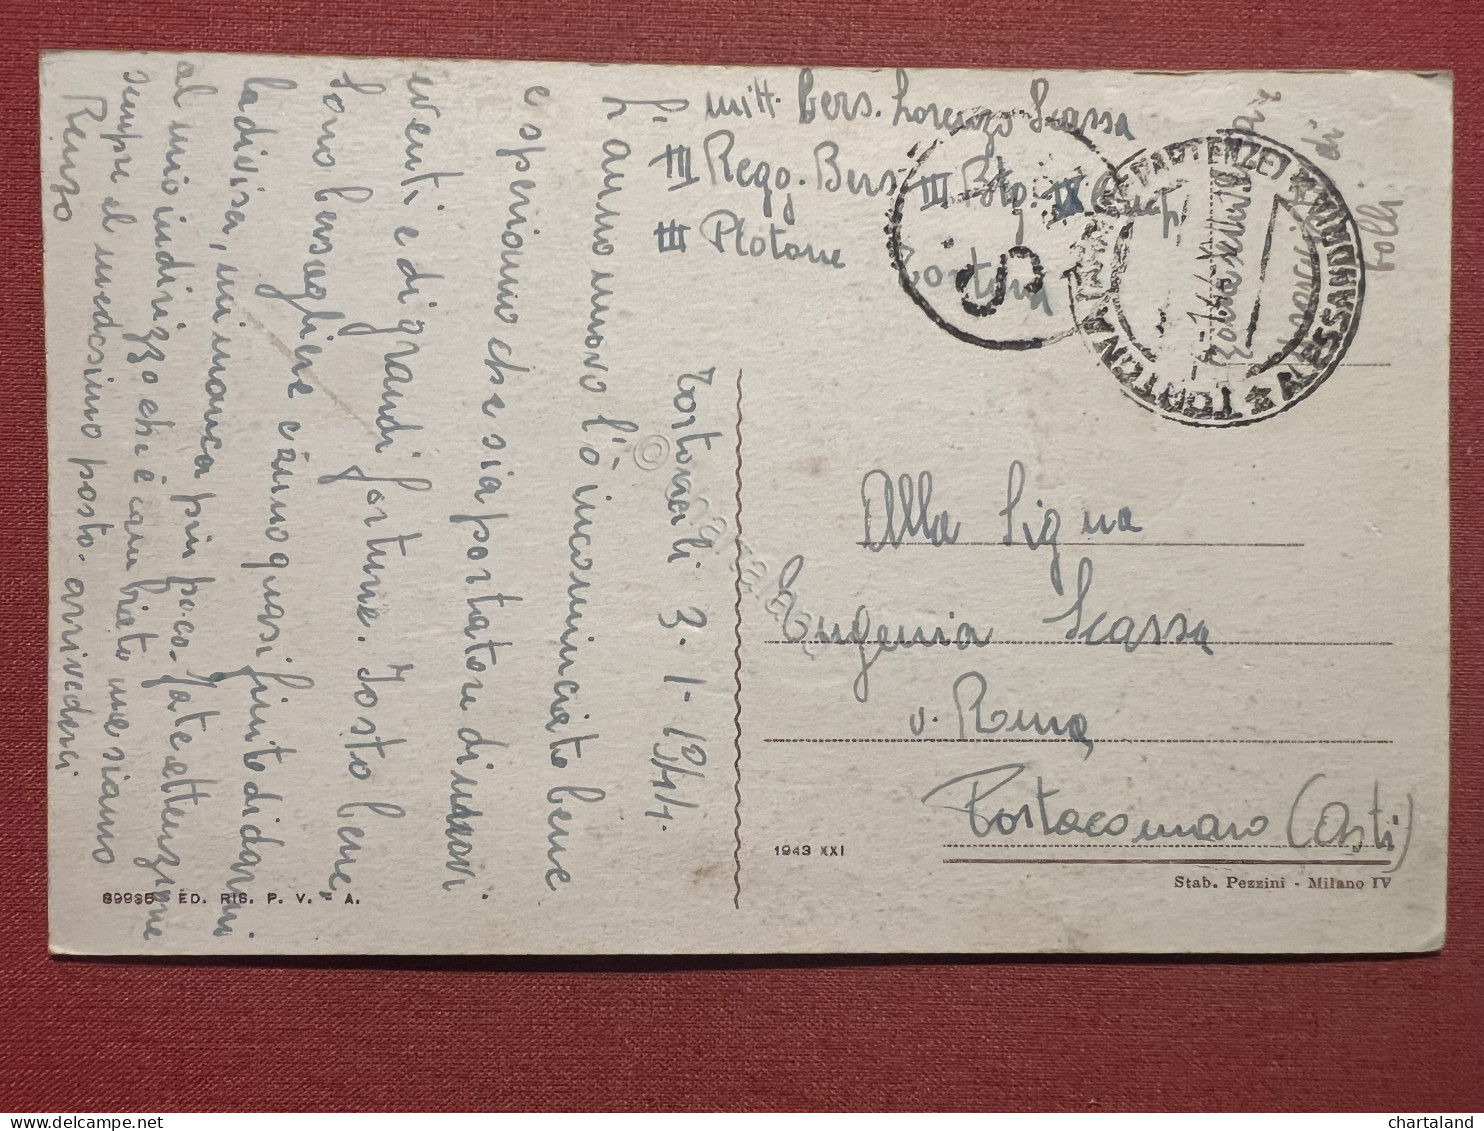 mitt. Bers. Lorenzo Scassa
III Regg. Bers. III Btg. IX Comp
III Plotone Tortona
Tortona li 3-1-1944.
L'anno nuovo l'ò incominciato bene
e speriamo che sia portatore di nuovi
eventi e di grandi fortune. Io sto bene,
sono bersagliere e anno quasi finito di darmi
la divisa, mi manca più poco. fate attenzione
al mio indirizzo che è cambiato ma siamo
sempre al medesimo posto. arrivederci
Renzo
89935 ED. RIS. P. V. - A.
TORTONA (ARR. E PARTENZE)
ALESSANDRIA
S
Alla Signa
Eugenia Scassa
v. Roma
Portacomaro (Asti)
1943 XXI
Stab. Pezzini - Milano IV
chartaland